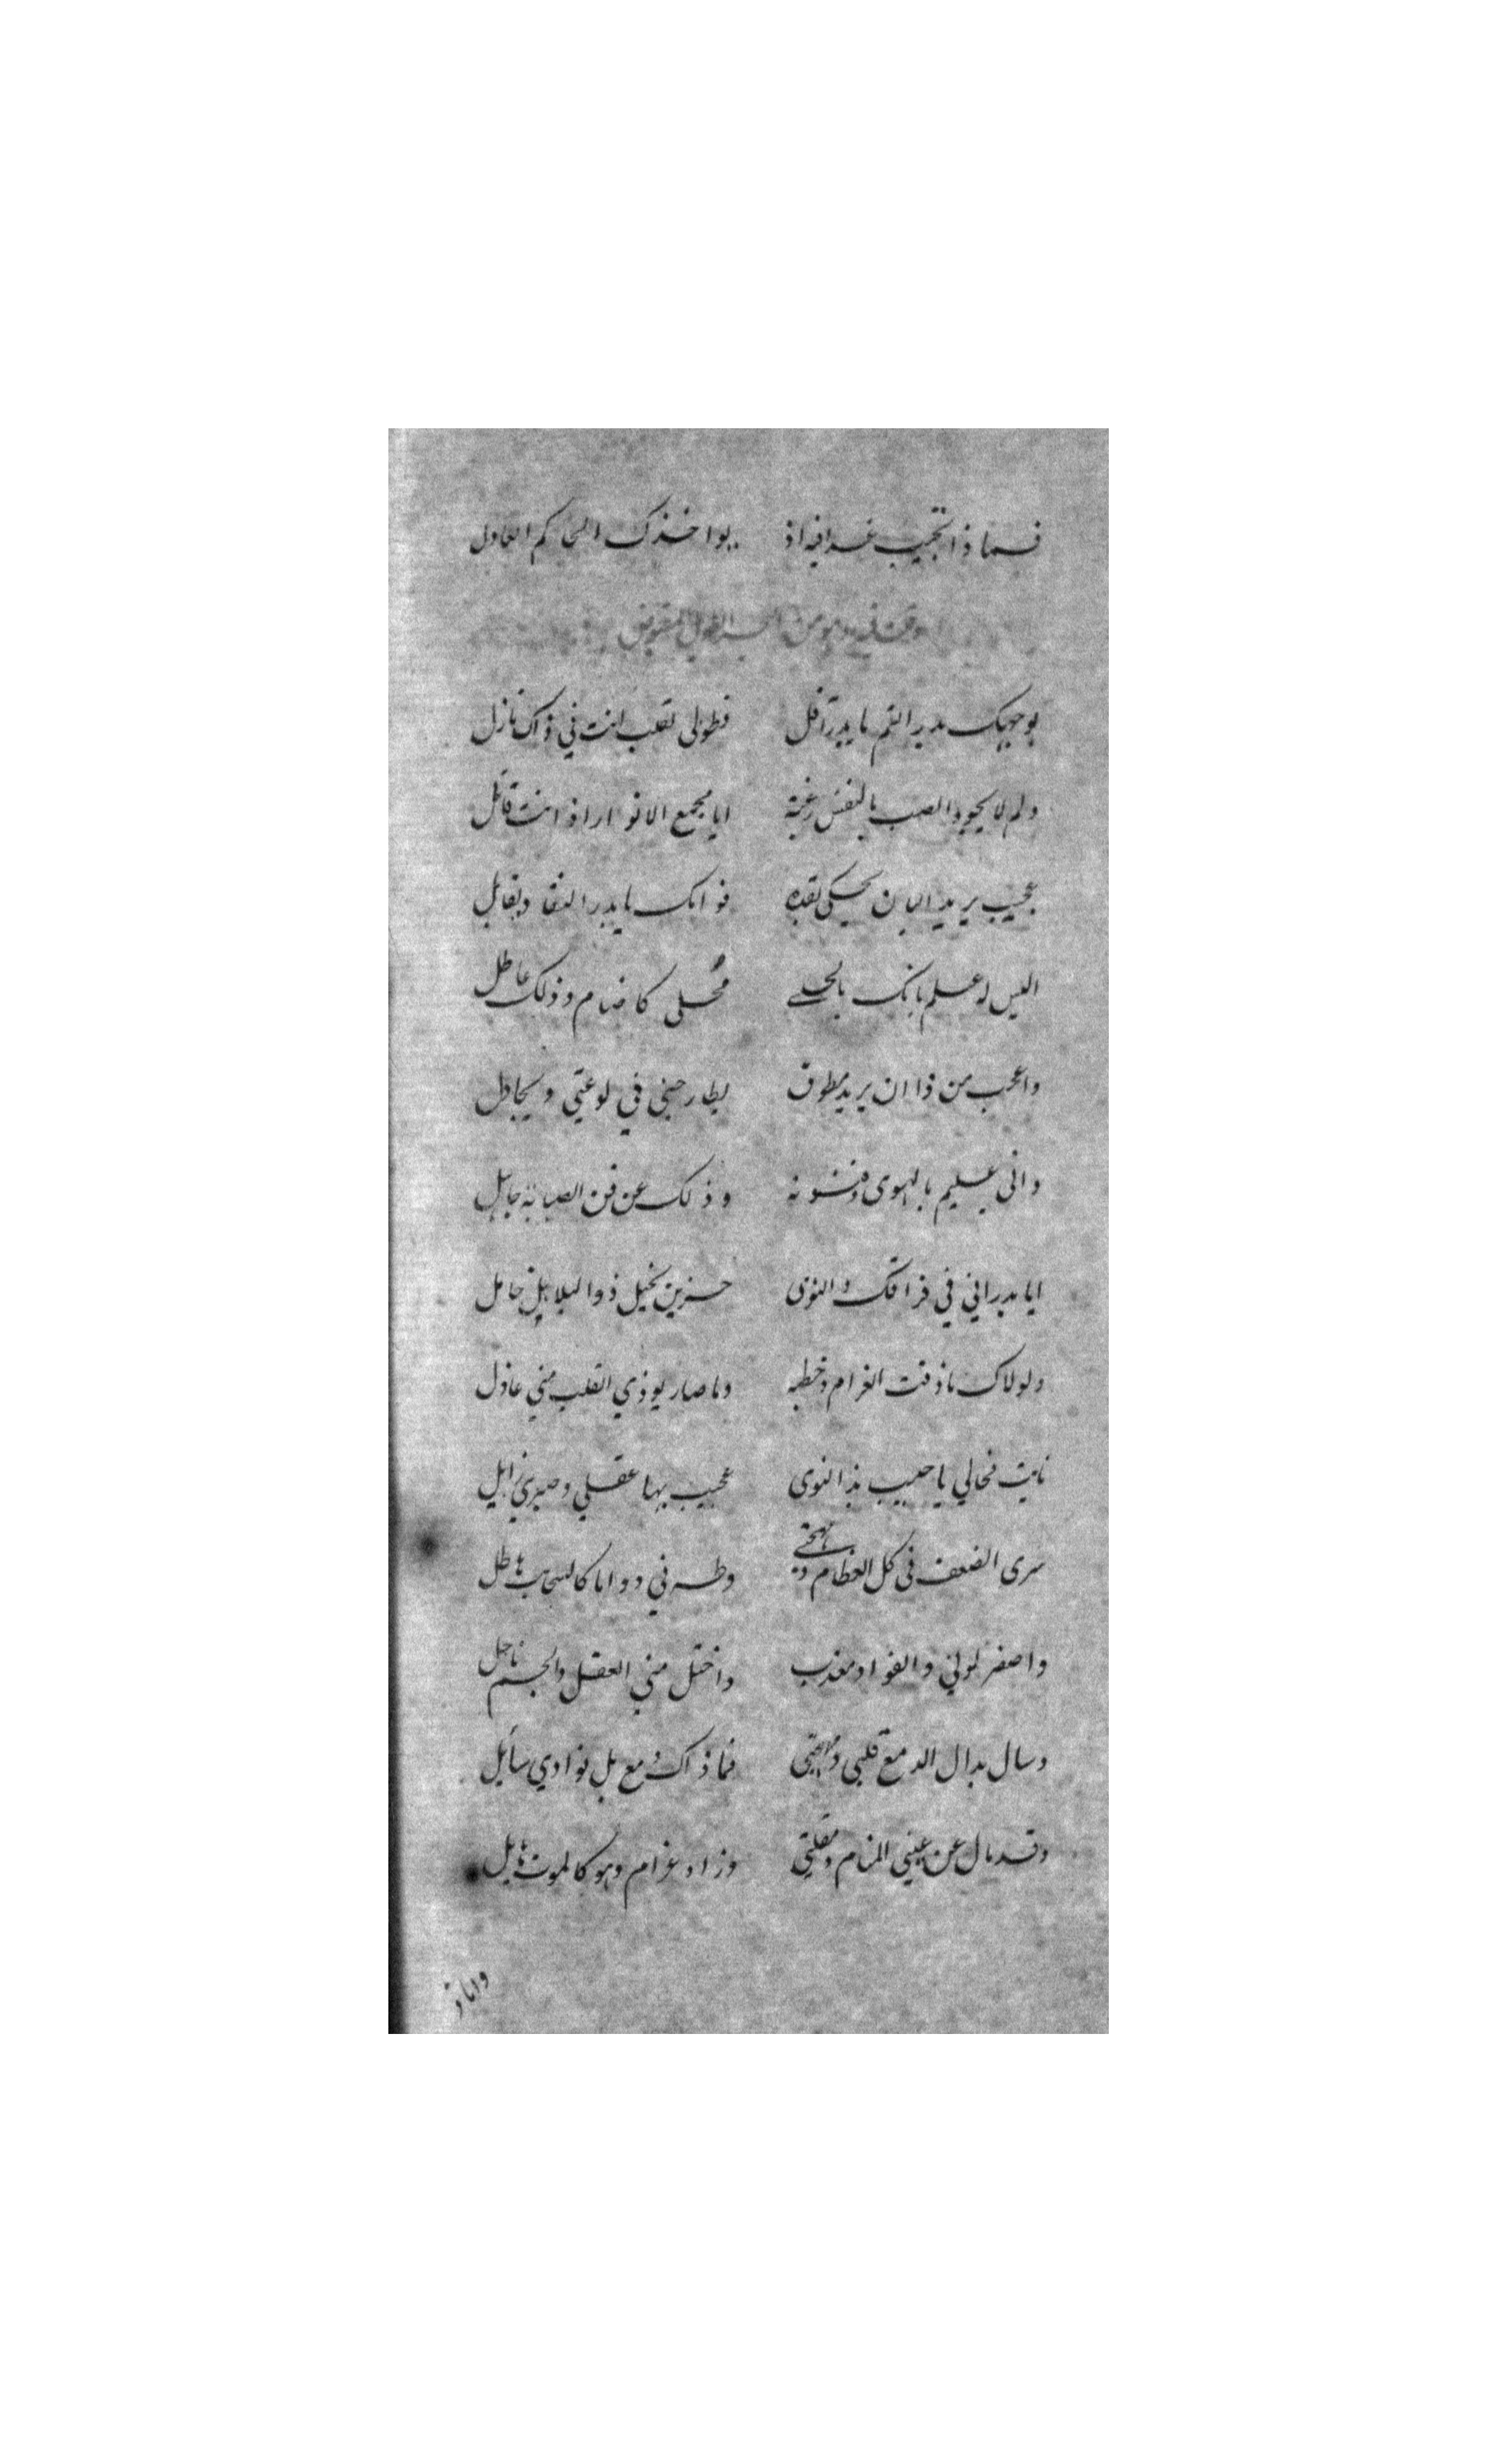 فماذا تجيب غدا فيه اذ يواخذك الحاكم العادل
وقلت فيه وهو من البحر الطويل المقبوض
بوجهك بدر التم يا بدر آفل فطوبى لقلب انت في ذاك نازل
ولم لا يجود الصب بالنفس رغبة ايا مجمع الانوار اذ انت قاتل
عجيب يريد البان يحكى لقده قوامك يا بدر النقا ويقابل
اليس له علم بانك بالحلى محلى كاضام وذلك عاطل
واعجب من ذا ان يريد مطوق يطارحني في لوعتي ويجادل
واني عليم بالهوى وفنونه وذلك عن فن الصبابة جاهل
ايا بدر اني في فراقك والنوى حزين نحيل ذو البلابل خامل
ولولاك ما ذقت الغرام وخطبه وما صار يوذي القلب مني عاذل
نايت فحالي يا حبيب بذا النوى عجيب بها عقلي وصبري زايل
سرى الضعف في كل العظام ومهجتي وطرفي دواما كالسحايب هاطل
واصفر لوني والفواد معذب واختل مني العقل والجسم ناحل
وسال بدال الدمع قلبي ومهجتي فما ذاك دمع بل فوادي سايل
وقد مال عن عيني المنام ومقلتي وزاد غرام وهو كالموت هايل